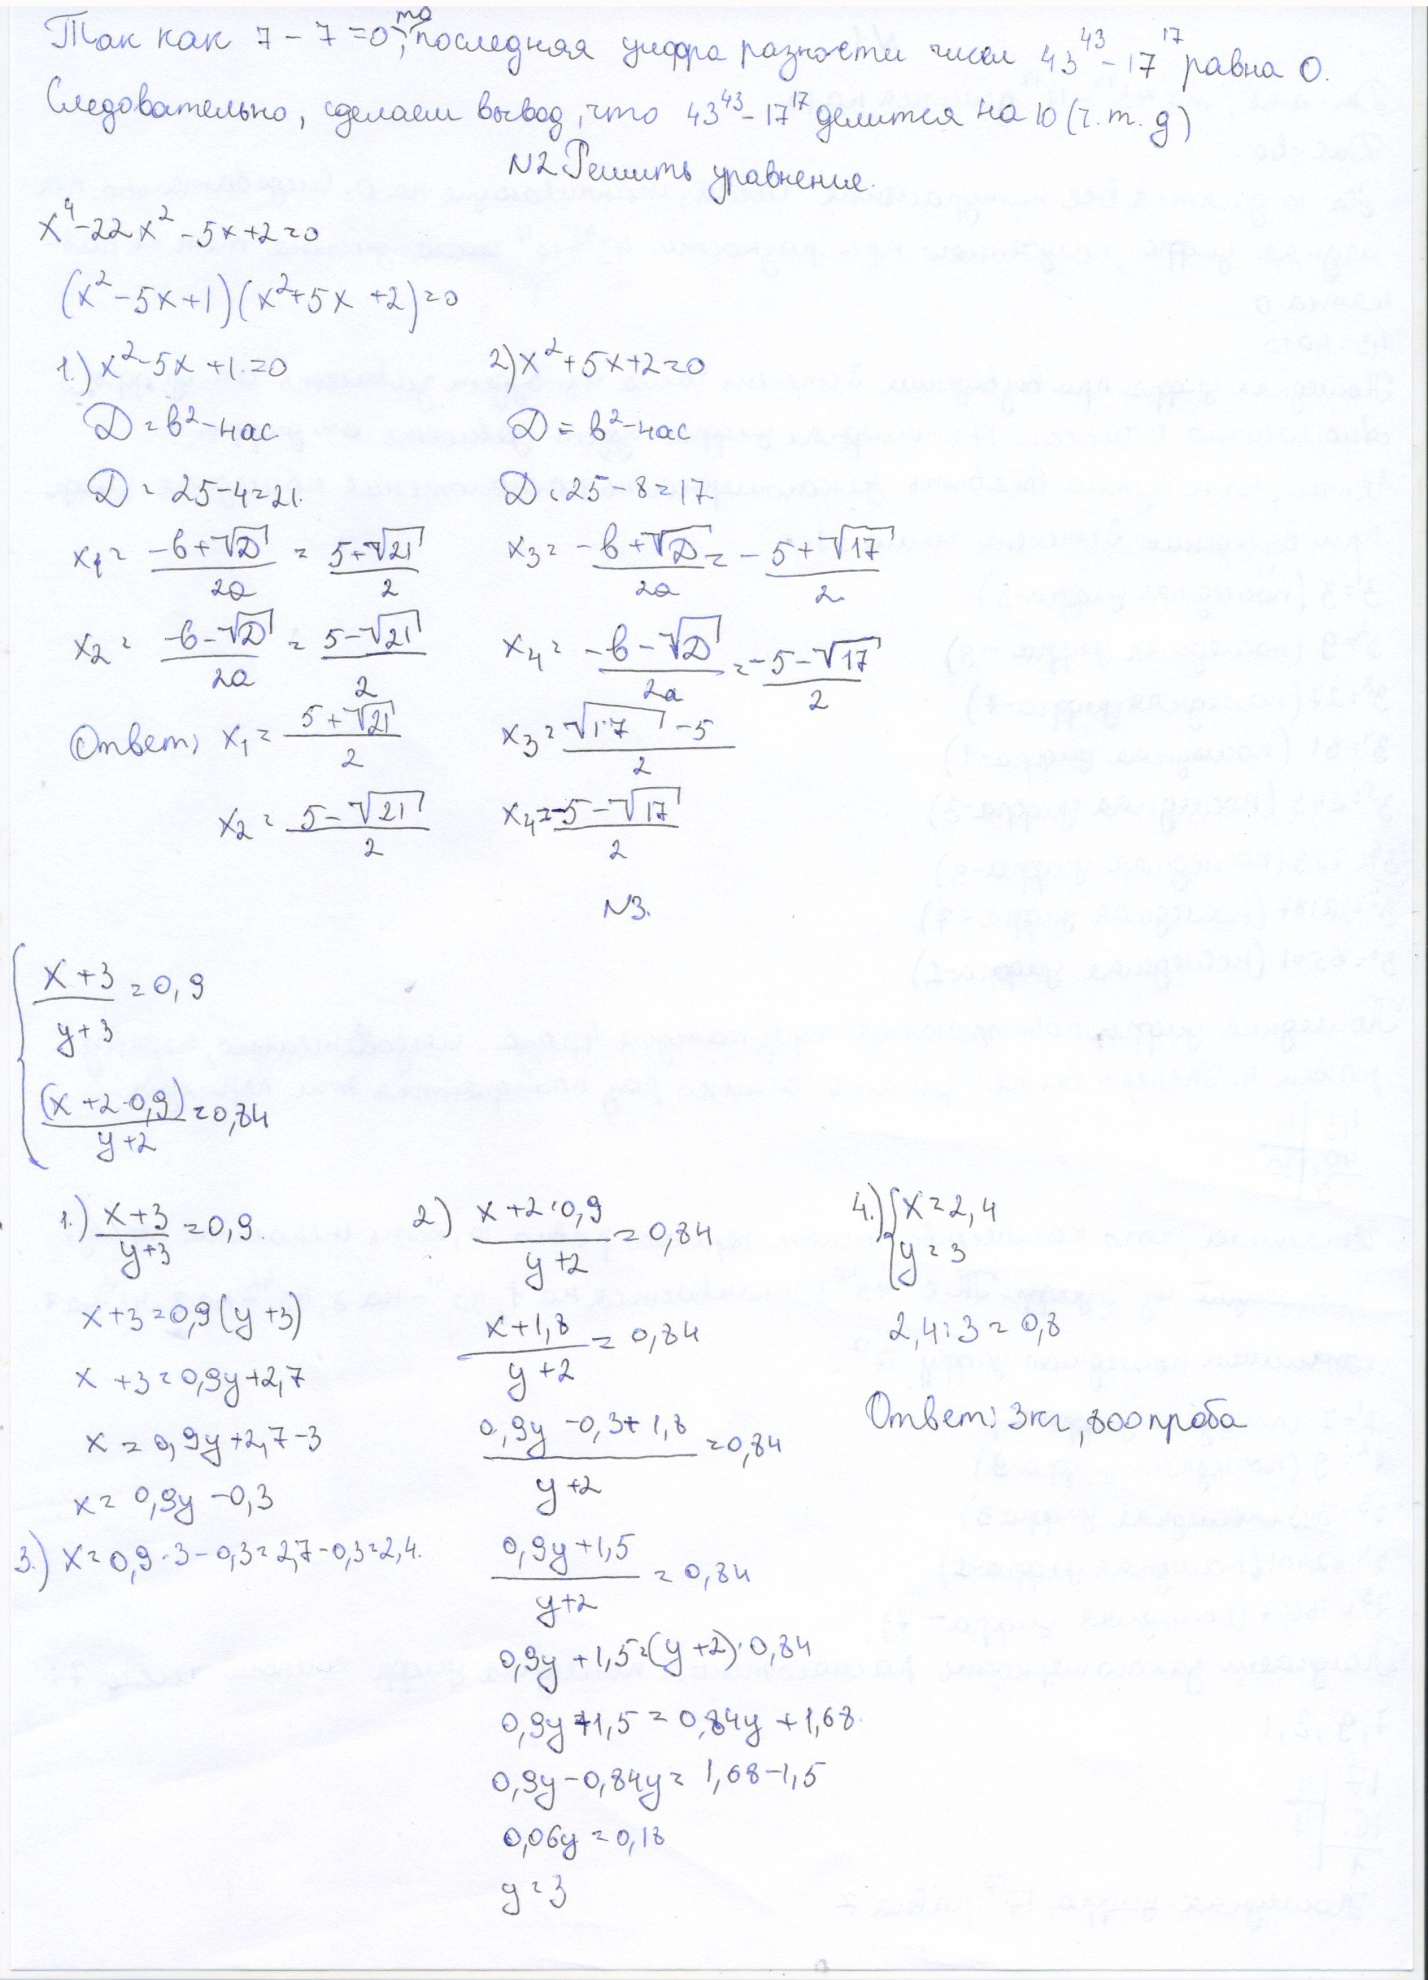 Так как 7 - 7 = 0, то последняя цифра разности чисел 43⁴³ - 17¹⁷ равна 0.
Следовательно, сделаем вывод, что 43⁴³ - 17¹⁷ делится на 10 (ч.т.д)
N2 Решить уравнение.
x⁴ - 22x² - 5x + 2 = 0
(x² - 5x + 1)(x² + 5x + 2) = 0
1.) x² - 5x + 1 = 0
D = b² - 4ac.
D = 25 - 4 = 21.
x₁ = (-b + √D)/2a = (5 + √21)/2
x₂ = (-b - √D)/2a = (5 - √21)/2
2) x² + 5x + 2 = 0
D = b² - 4ac
D = 25 - 8 = 17.
x₃ = (-b + √D)/2a = (-5 + √17)/2
x₄ = (-b - √D)/2a = (-5 - √17)/2
Ответ: x₁ = (5 + √21)/2 x₃ = (√17 - 5)/2
x₂ = (5 - √21)/2 x₄ = (-5 - √17)/2
N3.
{ (x + 3)/(y + 3) = 0,9
(x + 2·0,9)/(y + 2) = 0,84
1.) (x + 3)/(y + 3) = 0,9
x + 3 = 0,9(y + 3)
x + 3 = 0,9y + 2,7
x = 0,9y + 2,7 - 3
x = 0,9y - 0,3
2) (x + 2·0,9)/(y + 2) = 0,84
(x + 1,8)/(y + 2) = 0,84
(0,9y - 0,3 + 1,8)/(y + 2) = 0,84
(0,9y + 1,5)/(y + 2) = 0,84
0,9y + 1,5 = (y + 2)·0,84
0,9y + 1,5 = 0,84y + 1,68.
0,9y - 0,84y = 1,68 - 1,5
0,06y = 0,18
y = 3
3.) x = 0,9·3 - 0,3 = 2,7 - 0,3 = 2,4.
4.) { x = 2,4
y = 3
2,4 : 3 = 0,8
Ответ: 3 кг, 800 проба